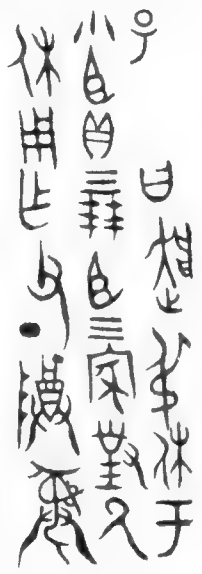 曰趞叔休于
小臣貝三朋臣三家對厥
休用乍父丁尊彝